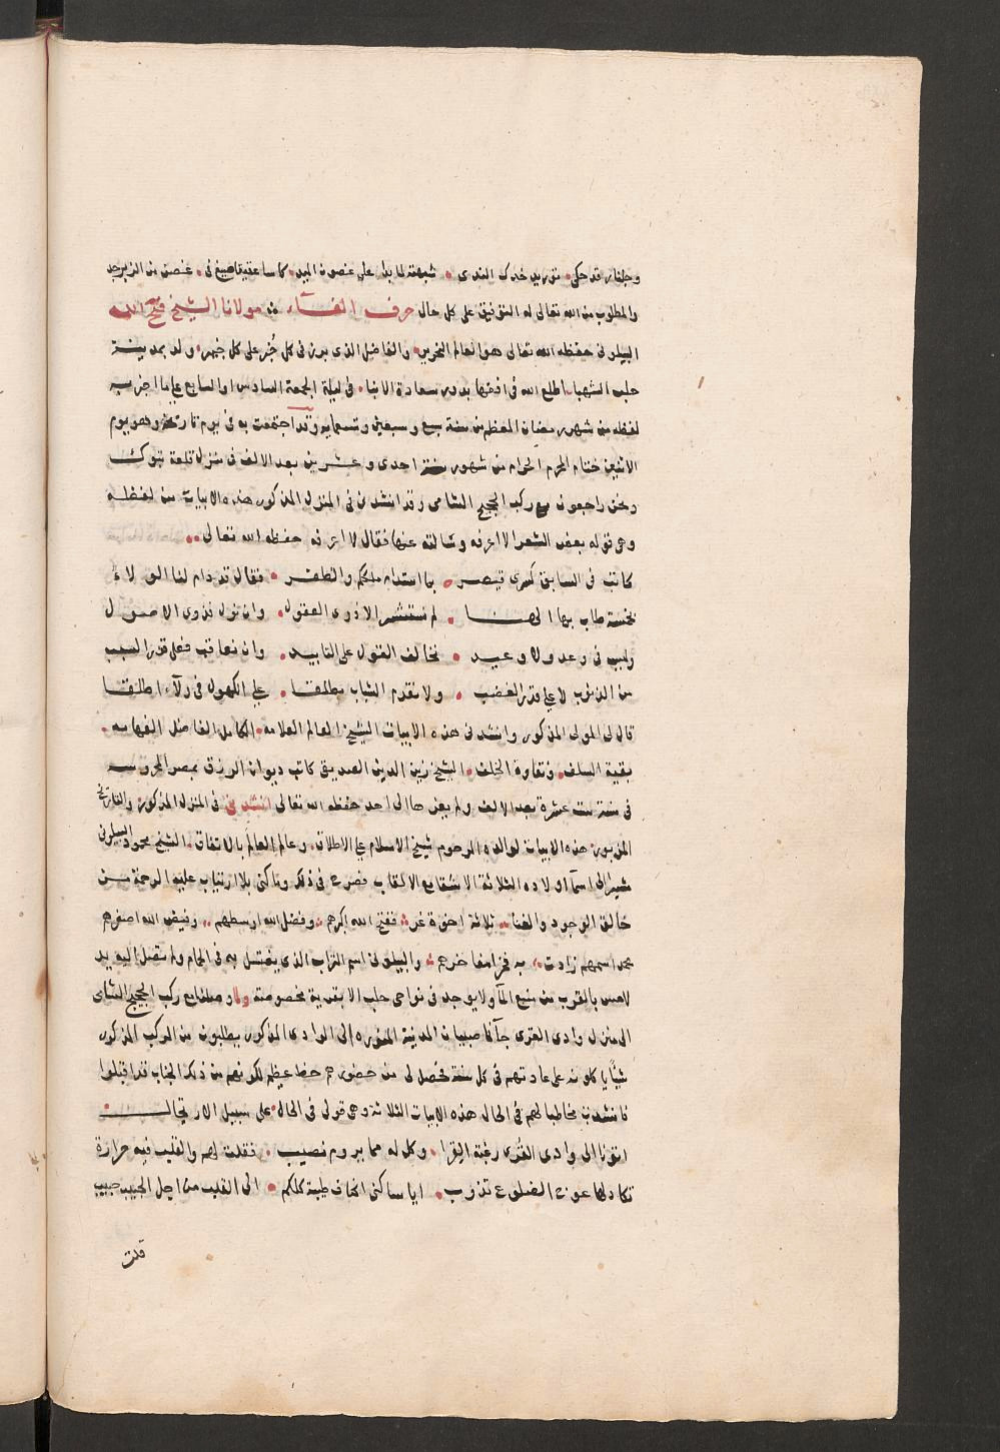 وجلنار قد حكى توريد خدك الندى شبهته لما بدا على غصونه الميد كاسا عقيقا صيغ في غصن من الزبرجد
والمطلوب من الله تعالى له التوفيق على كل حال حرف الفاء مولانا الشيخ فتح الله
البيلوني حفظه الله تعالى هو العالم النحرير والفاضل الذي برز في كل على كل ولد بمدينة
حلب الشهبا اطلع الله في افقها بدور سعادة الانبا في ليلة الجمعة السادس او السابع على ما اخبر به
لفظه من شهر رمضان المعظم من سنة سبع وسبعين وتسعماية وقد اجتمعت به في يوم تاريخه وهو يوم
الاثنين ختام المحرم الحرام من شهور سنة احدى وعشرين بعد الالف في منزل قلعة تبوك
ونحن راجعون مع ركب الحجيج الشامي وقد انشدني في المنزل المذكور هذه الابيات من لفظه
وهي قوله بعض الشعر الا اعرفه وسالته عنها فقال لا اعرفه حفظه الله تعالى
كاتب في السابق كسرى قيصر بما استدام ملككم والظفر فقال قد دام لنا الولاء
بخمسة طاب بها الهنا لم نستشر الا ذوي العقول وان نول فذوي الاصول
وليس في وعد ولا وعيد نخالف القول على التابيد وان نعاقب فعلى قدر السبب
من الذنوب لا على قدر الغضب ولا نقدم الشباب مطلقا على الكهول في ولاء اطلقا
قال لي المولى المذكور وانشدني هذه الابيات الشيخ العالم العلامه الكامل الفاضل الفهامه
بقية السلف ونقاوة الخلف الشيخ زين الدين الصديق كاتب ديوان الرزق بمصر المحروسه
في سنة ست عشرة بعد الالف ولم يعزها الى احد حفظه الله تعالى انشدني في المنزل المذكور والتاريخ
المزبور هذه الابيات لوالده المرحوم شيخ الاسلام على الاطلاق وعالم العالم بالاتفاق الشيخ محمود البيلوني
مشيرا الى اسما اولاده الثلاثة الاشقا مع الالقاب فصرح في ذلك وما كنى بلا ارتياب عليه الرحمة من
خالق الوجود والغنا ثلاثة اخوة غر ففتح الله اكبرهم وفضل الله اوسطهم وفيض الله اصغرهم
محمد اسمهم زادت به فخرا مفاخرهم والبيلوني اسم التراب الذي يغتسل به في الحمام ولم تصل اليه يد
لامس بالقرب من منبع الما ولا يوجد في نواحي حلب الا بقرية مخصوصة ولما وصلنا مع ركب الحجيج الشامي
الى منزل وادي القرى جآنا صبيان المدينة المنوره الى الوادي المذكور يطلبون من الركب المذكور
شيئا ياكلونه على عادتهم في كل سنة فحصل لي من حضورهم حظ عظيم لكونهم من ذلك الجناب قد اقبلوا
فانشدت مخاطبا لهم في الحال هذه الابيات الثلاثة وهي قولي في الحال على سبيل الارتجال
اتونا الى وادي القرى رغبة القرا وكل له مما يروم نصيب فقلت لهم والقلب فيه حرارة
تكاد لها عوج الضلوع تذوب ايا ساكني اكناف طيبة كلكم الى القلب من اجل الحبيب حبيب
قلت